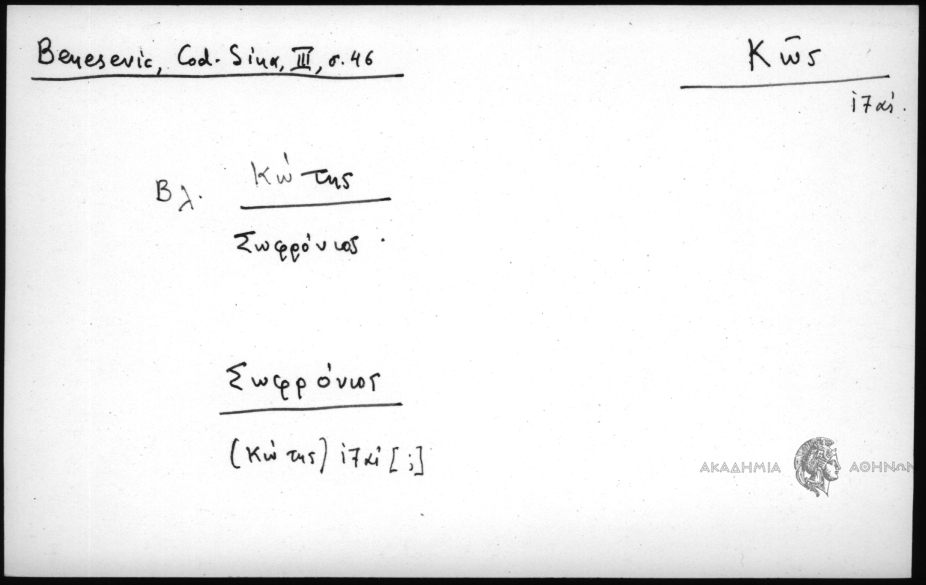 Benesevic, Cod. Sina, III, σ. 46
Κῶς
ι7αι.
Βλ. Κώτης
Σωφρόνιος.
Σωφρόνιος
(Κώτης) ι7αι [;]
ΑΚΑΔΗΜΙΑ ΑΘΗΝΩΝ